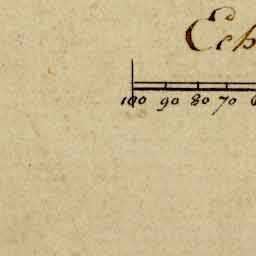 Ech
100 90 80 70 6